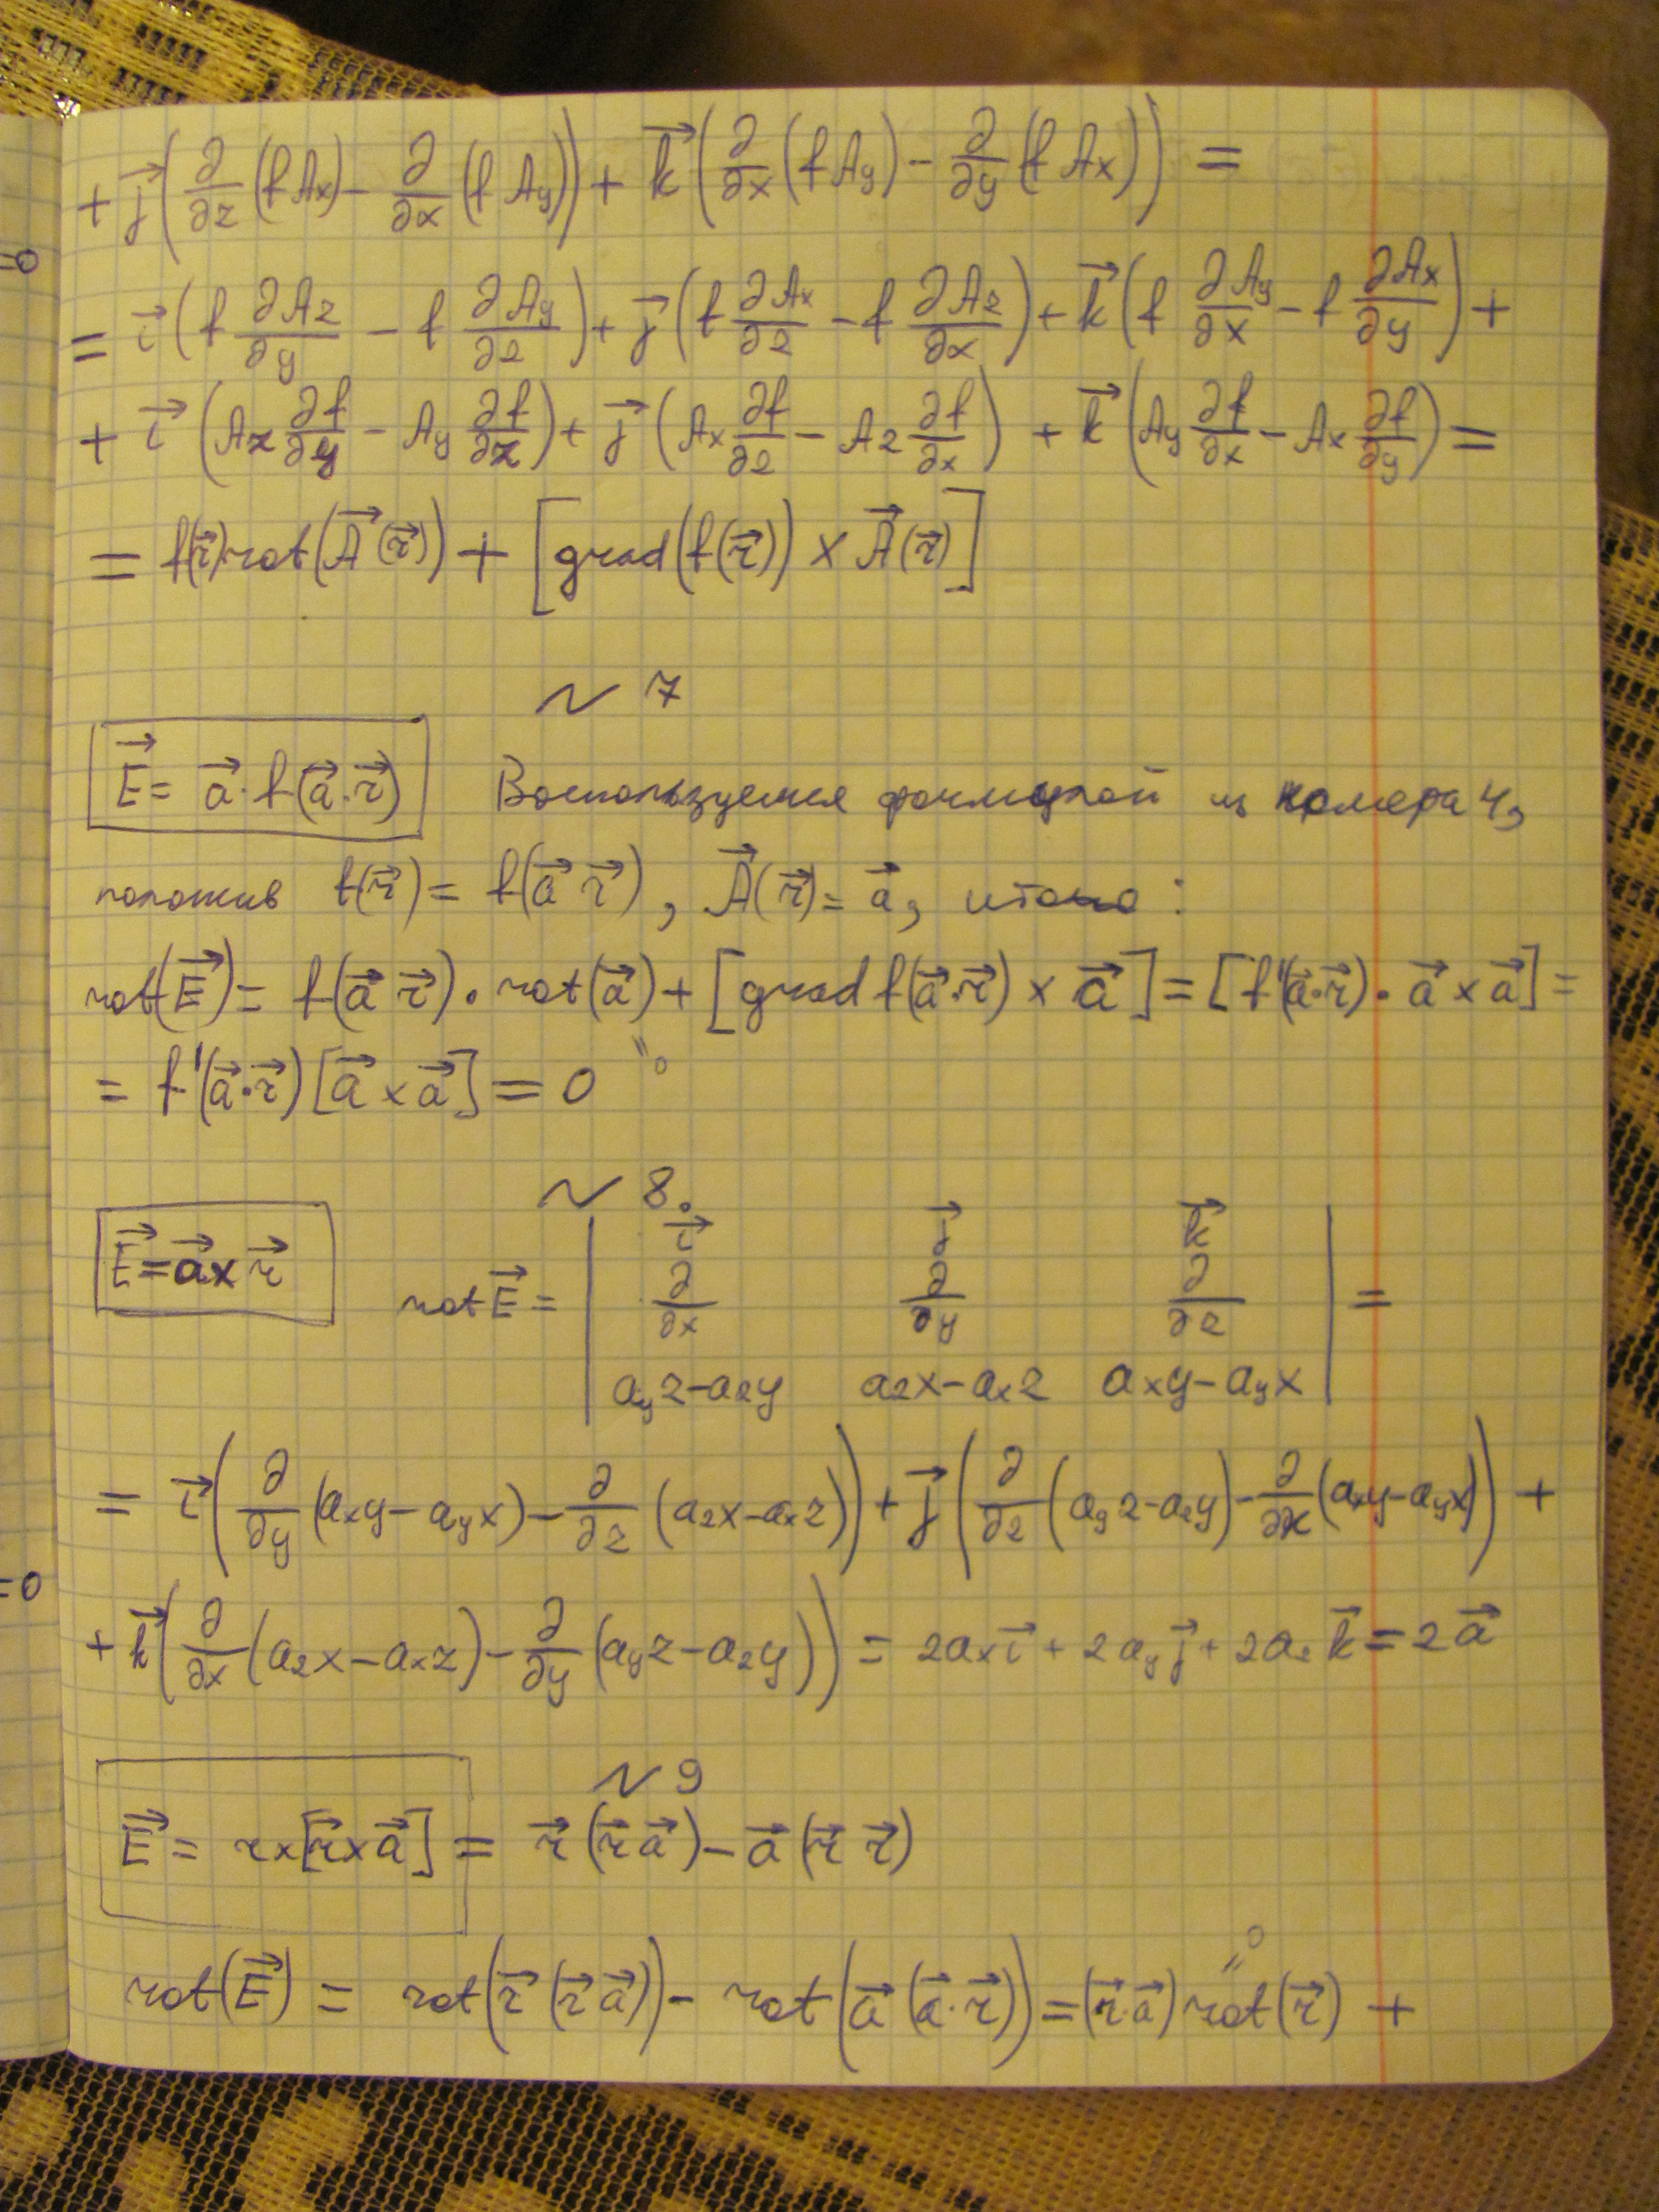 =0
+ j⃗(∂/∂z (fAx) − ∂/∂x (fAy)) + k⃗(∂/∂x (fAy) − ∂/∂y (fAx)) =
= i⃗(f ∂Az/∂y − f ∂Ay/∂z) + j⃗(f ∂Ax/∂z − f ∂Az/∂x) + k⃗(f ∂Ay/∂x − f ∂Ax/∂y) +
+ i⃗(Az ∂f/∂y − Ay ∂f/∂z) + j⃗(Ax ∂f/∂z − Az ∂f/∂x) + k⃗(Ay ∂f/∂x − Ax ∂f/∂y) =
= f(r⃗) rot(A⃗(r⃗)) + [grad(f(r⃗)) × A⃗(r⃗)]
N 7
E⃗ = a⃗·f(a⃗·r⃗) Воспользуемся формулой из номера 4,
положив f(r⃗) = f(a⃗ r⃗), A⃗(r⃗) = a⃗, итого:
rot(E⃗) = f(a⃗ r⃗)·rot(a⃗) + [grad f(a⃗·r⃗) × a⃗] = [f'(a⃗·r⃗)·a⃗ × a⃗] =
"0
= f'(a⃗·r⃗)[a⃗ × a⃗] = 0
N 8.
E⃗ = a⃗ × r⃗ rot E⃗ = | i⃗ j⃗ k⃗ |
| ∂/∂x ∂/∂y ∂/∂z | =
| ayz−azy azx−axz axy−ayx |
= i⃗(∂/∂y (axy−ayx) − ∂/∂z (azx−axz)) + j⃗(∂/∂z (ayz−azy) − ∂/∂x (axy−ayx)) +
=0
+ k⃗(∂/∂x (azx−axz) − ∂/∂y (ayz−azy)) = 2ax i⃗ + 2ay j⃗ + 2az k⃗ = 2a⃗
N 9
E⃗ = r×[r⃗×a⃗] = r⃗(r⃗ a⃗) − a⃗(r⃗ r⃗)
"0
rot(E⃗) = rot(r⃗(r⃗ a⃗)) − rot(a⃗(a⃗·r⃗)) = (r⃗·a⃗) rot(r⃗) +